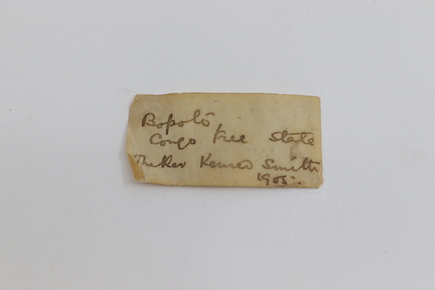 Bopoto
Congo Free State
The Rev Kenred Smith
1905.